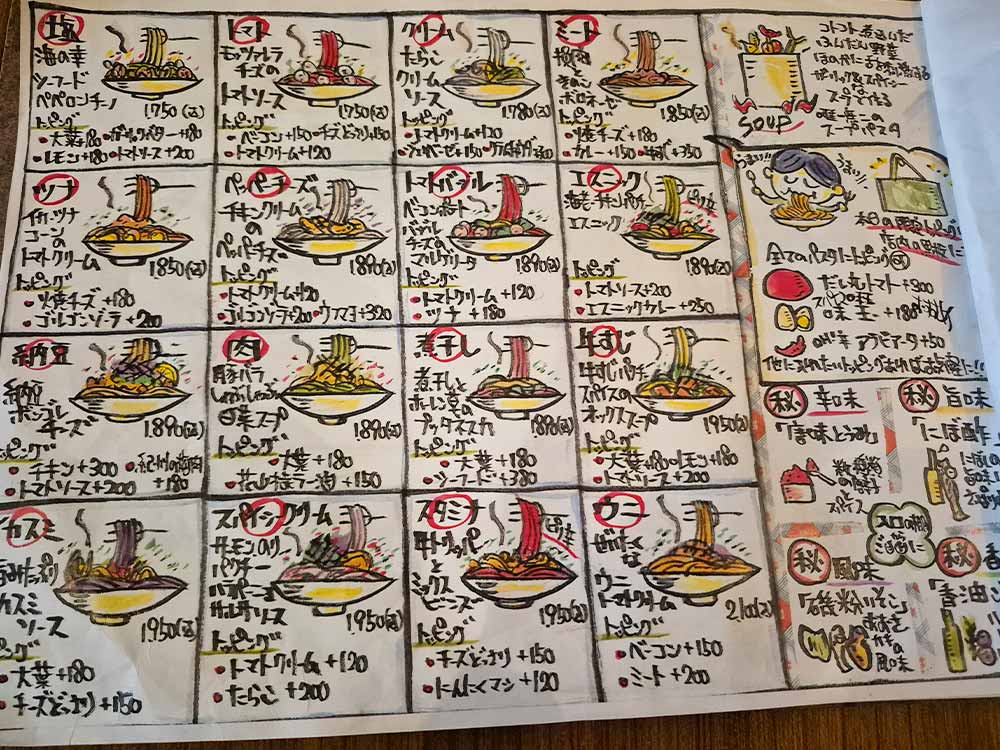 塩
海の幸
シーフード
ペペロンチーノ
1750(込)
トッピング
・大葉+180 ・ガーリックバター+180
・レモン+180 ・トマトソース+200
トマト
モッツァレラ
チーズの
トマトソース
1750(込)
トッピング
・ベーコン+150 ・チーズどっさり+150
・トマトクリーム+120
クリーム
たらこ
クリーム
ソース
1780(込)
トッピング
・トマトクリーム+120
ミート
きのこ
ボロネーゼ
1850(込)
トッピング
・焼チーズ+180
・カレー+150
+350
ツナ
ツナ
コーンの
トマトクリーム
1850(込)
トッピング
・焼チーズ+180
・ゴルゴンゾーラ+200
ペッパーチーズ
チキンクリーム
の
ペッパーチーズ
1890(込)
トッピング
・トマトクリーム+120
・ゴルゴンゾーラ+200
+320
トマトバジル
ベーコンポテト
バジル
チーズの
マルゲリータ
1890(込)
トッピング
・トマトクリーム+120
・ツナ+180
エスニック
海老・チキン・パクチー
エスニック
ピリ辛
1890(込)
トッピング
・トマトソース+200
・エスニックカレー+250
納豆
納豆
ボンゴレ
チーズ
1890(込)
トッピング
・チキン+300
・トマトソース+200
+180
肉
豚バラ
しゃぶしゃぶ
白菜スープ
1890(込)
トッピング
・大葉+180
・花山椒ラー油+150
煮干し
煮干しと
ホーレン草
の
プッタネスカ
1890(込)
トッピング
・大葉+180
・シーフード+380
牛すじ
牛すじパクチー
スパイスの
オックススープ
1950(込)
トッピング
・大葉+180 ・レモン+180
・トマトソース+200
イカスミ
カスミ
ソース
1950(込)
・大葉+180
・チーズどっさり+150
スパイシークリーム
サーモンのり
パクチー
ハラペーニョ
サルサソース
1950(込)
トッピング
・トマトクリーム+120
・たらこ+200
スタミナ
牛トリッパ
と
ミックス
ビーンズ
ピリ辛
1950(込)
トッピング
・チーズどっさり+150
・にんにくマシ+120
ウニ
ぜいたく
な
ウニ
トマトクリーム
210(込)
トッピング
・ベーコン+150
・ミート+200
コトコト煮込んだ
ふんだん野菜
ほのかに
ガーリック&スパイシー
な
スープで作る
唯一無二の
スープパスタ
SOUP
うまい!!
うまい!!
本日の
店内の黒板に
全てのパスタにトッピング
だし丸トマト+300
味玉+180
アラビアータ+50
秘 辛味
数種類
の唐辛子
と
スパイス
秘 旨口味
秘 風味
「磯粉いそこ」
あおさ
カキ
の
風味
秘
「香油